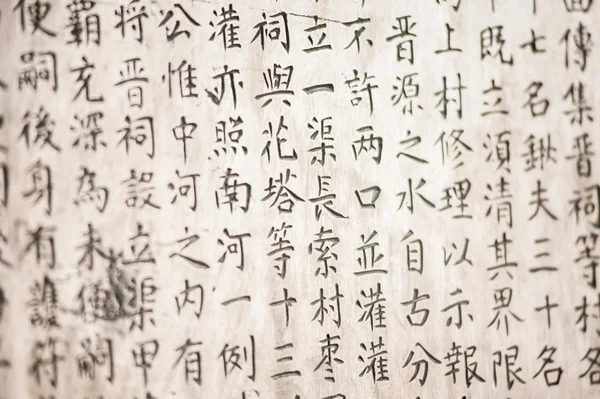 傳集晋祠等村各
十七名鍬夫三十名
既立須清其界限
上村修理以示報
晋源之水自古分
不許两口並灌灌
立一渠長索村枣
祠與花塔等十三
灌亦照南河一例
公惟中河之内有
將晋祠設立渠甲
霸充深為未便嗣
便嗣後身有護符